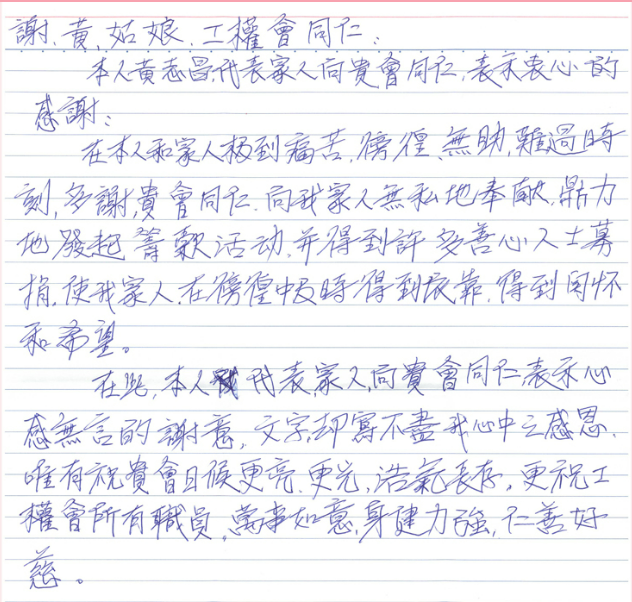 謝,黃,姑娘,工權會同仁:
本人黃志昌,代表家人向貴會同仁,表示衷心的
感謝:
在本人和家人極到痛苦,徬徨,無助,難過時
刻,多謝,貴會同仁.向我家人無私地奉献.鼎力
地發起籌款活动.并得到許多善心人士募
捐,使我家人.在徬徨中及時得到依靠.得到関怀
和希望。
在此,本人代表,家人,向貴會同仁,表示心
感無言的謝意,文字,却寫不盡我心中之感恩.
唯有祝貴會日候更亮.更光,浩氣長存,更祝工
權會所有職員,萬事如意,身健力強,仁善好
慈。